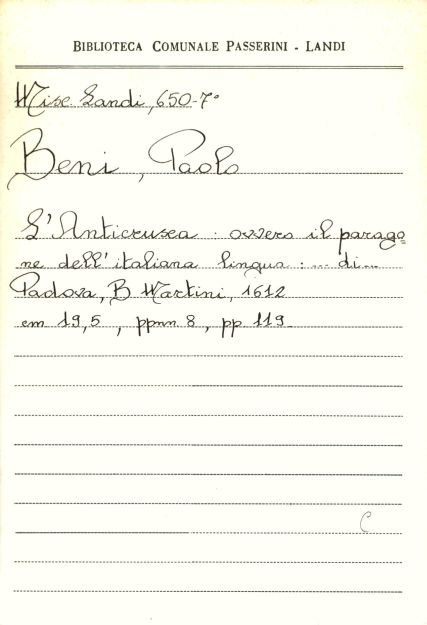 BIBLIOTECA COMUNALE PASSERINI - LANDI
Misc. Landi, 650-7°
Beni, Paolo
L'Anticrusca : ovvero il parago=
ne dell'italiana lingua : ... di...
Padova, B Martini, 1612
cm 19,5 , ppnn. 8 , pp. 119
C